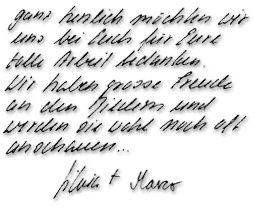 ganz herzlich möchten wir
uns bei Euch für Eure
tolle Arbeit bedanken.
Wir haben grosse Freude
an den Bildern und
werden sie wohl noch oft
anschauen...
Silvia + Marco